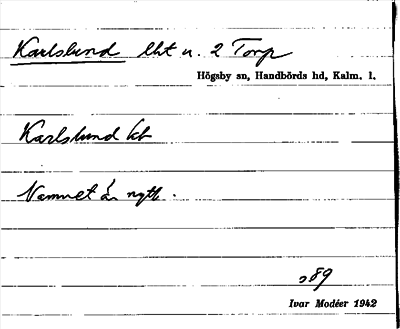 Karlslund lht u. 2 Torp
Högsby sn, Handbörds hd, Kalm. l.
Karlslund kb
Namnet är nytt.
Ivar Modéer 1942